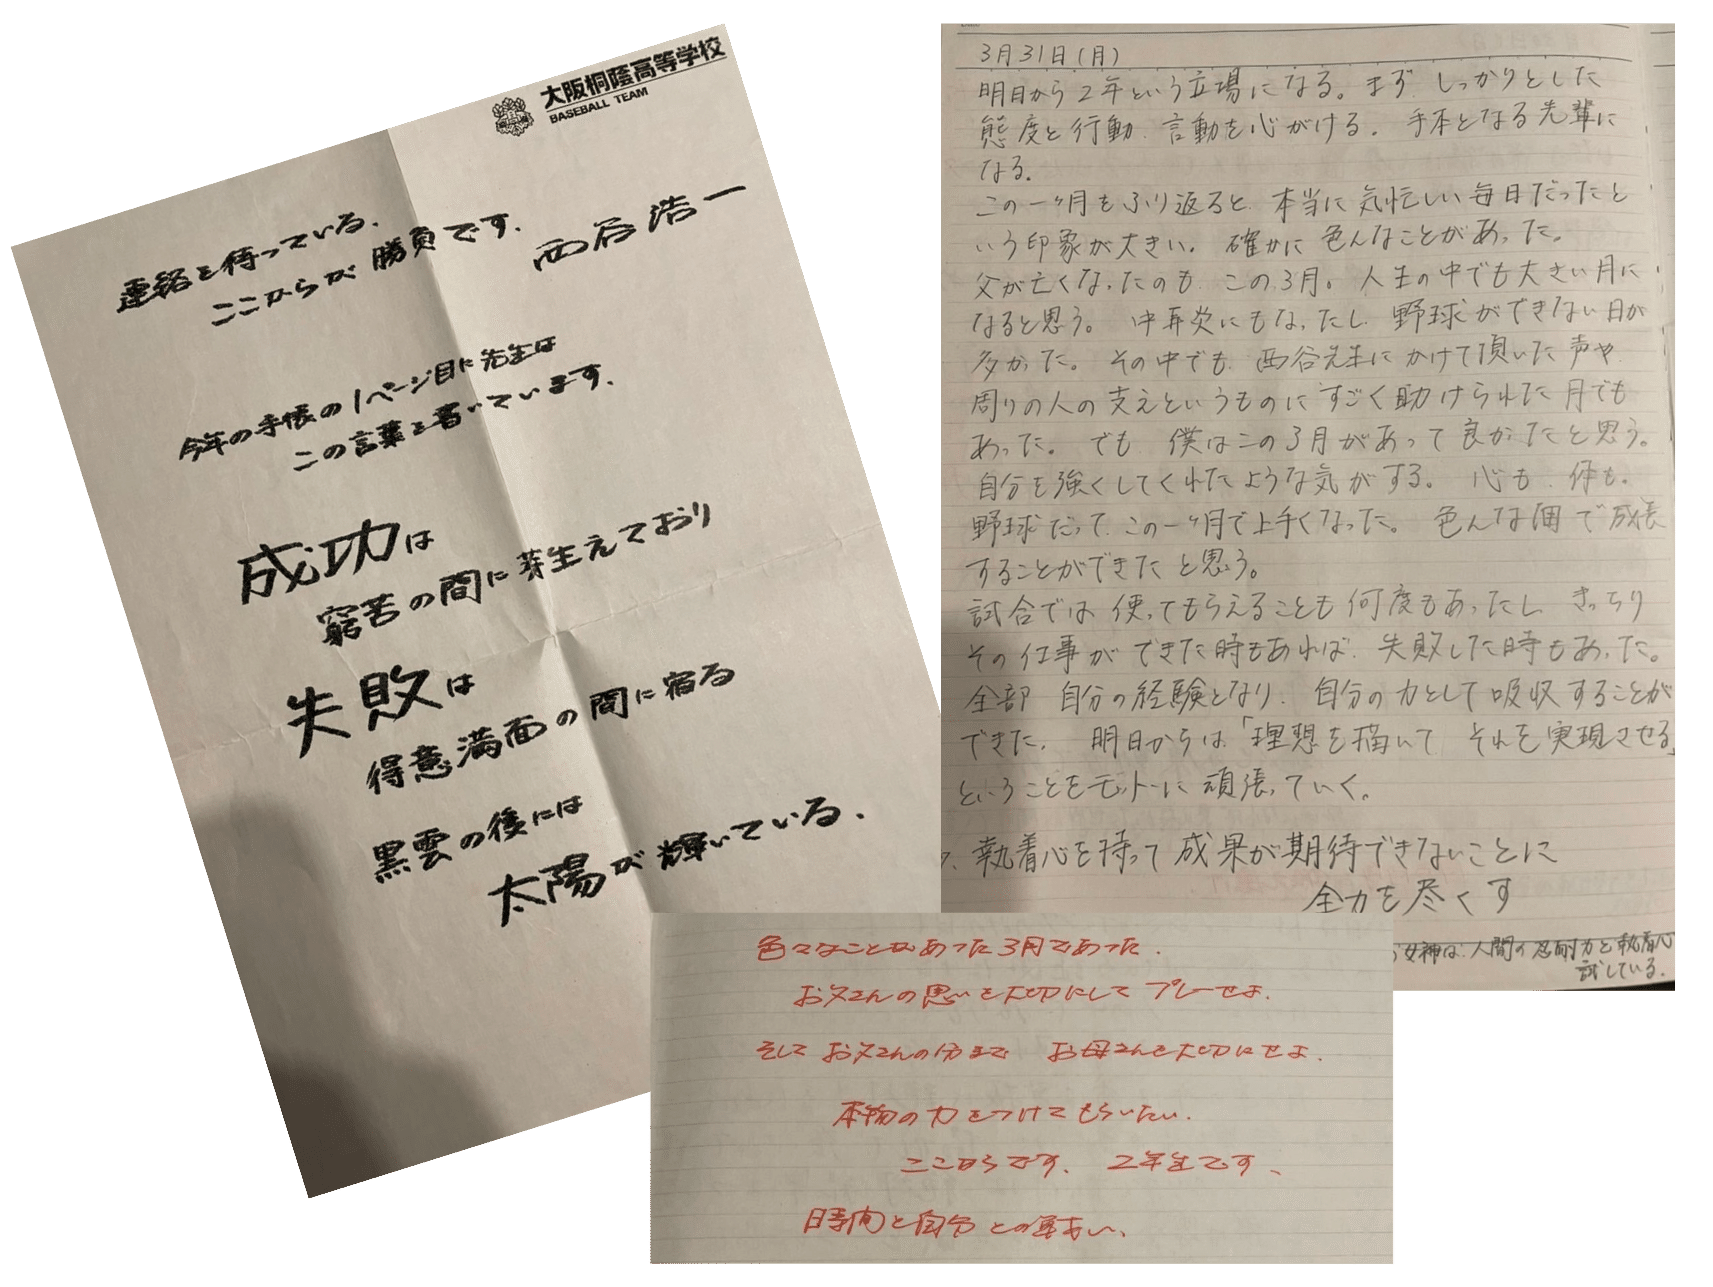 大阪桐蔭高等学校
BASEBALL TEAM
連絡を待っている.
ここからが勝負です.
西谷浩一
今年の手帳の1ページ目に先生は
この言葉を書いています.
成功は
窮苦の間に芽生えており
失敗は
得意満面の間に宿る
黒雲の後には
太陽が輝いている.
3月31日(月)
明日から2年という立場になる。まず しっかりとした
態度と行動、言動を心がける. 手本となる先輩に
なる.
この一ヶ月もふり返ると、本当に気忙しい毎日だったと
いう印象が大きい. 確かに色んなことがあった。
父が亡くなったのも この3月。人生の中でも大きい月に
なると思う。中耳炎にもなったし 野球ができない日が
多かった。その中でも、西谷先生にかけて頂いた声や
周りの人の支えというものに すごく助けられた月でも
あった。でも 僕はこの3月があって良かったと思う。
自分を強くしてくれたような気がする。心も、体も.
野球だって この一ヶ月で上手くなった。色んな面で成長
することができたと思う。
試合では使ってもらえることも何度もあったし きっちり
その仕事ができた時もあれば、失敗した時もあった。
全部 自分の経験となり、自分の力として吸収することが
できた. 明日からは「理想を描いて それを実現させる」
ということをモットーに頑張っていく。
執着心を持って成果が期待できないことに
全力を尽くす
女神は、人間の忍耐力と執着心
試している.
色々なことがあった3月であった.
お父さんの思いを大切にしてプレーせよ.
そしてお父さんの分まで お母さんを大切にせよ.
本物の力をつけてもらいたい.
ここからです. 2年生です、
時間と自分との